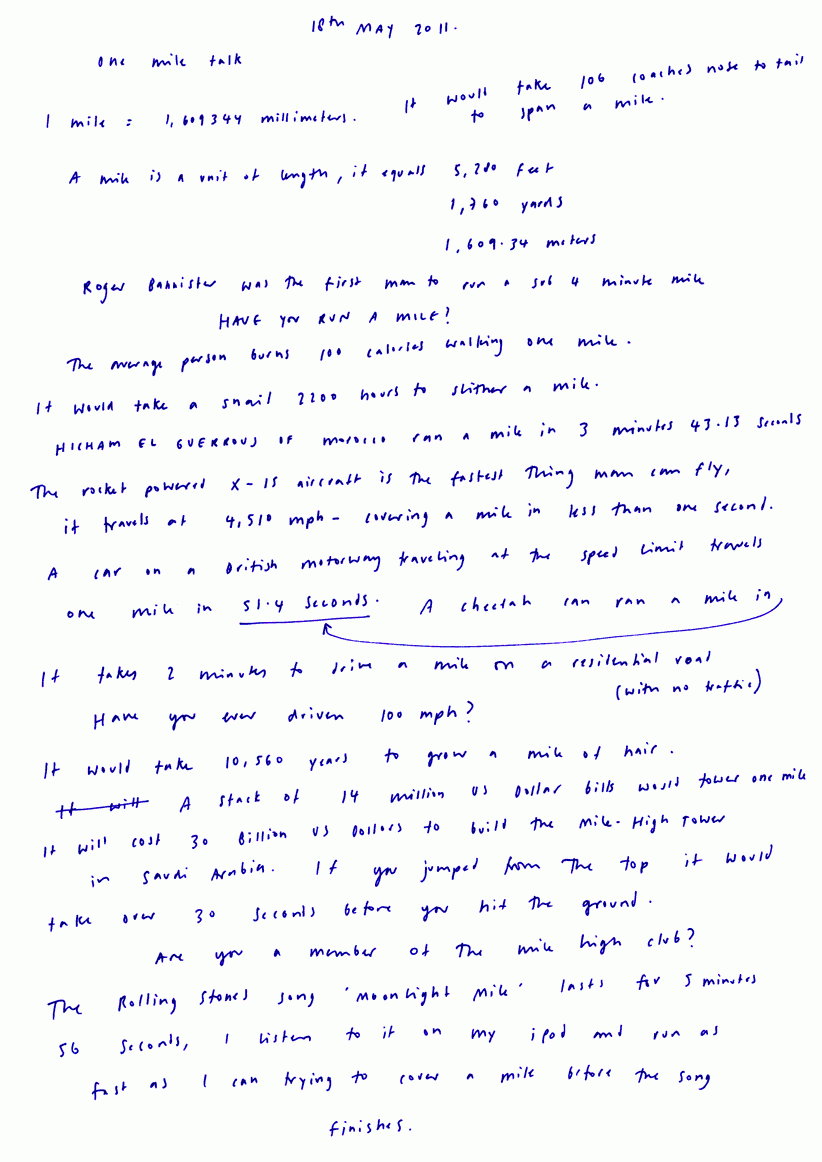 18th MAY 2011.
One mile talk
1 mile = 1,609344 millimeters. It would take 106 coaches nose to tail
to span a mile.
A mile is a unit of length, it equals 5,280 feet
1,760 yards
1,609.34 meters
Roger Bannister was the first man to run a sub 4 minute mile
HAVE YOU RUN A MILE?
The average person burns 100 calories walking one mile.
It would take a snail 2200 hours to slither a mile.
HICHAM EL GUERROUJ OF morocco ran a mile in 3 minutes 43.13 seconds
The rocket powered X-15 aircraft is the fastest thing man can fly,
it travels at 4,510 mph - covering a mile in less than one second.
A car on a British motorway traveling at the speed limit travels
one mile in 51.4 seconds. A cheetah can ran a mile in
It takes 2 minutes to drive a mile on a residential road
(with no traffic)
Have you ever driven 100 mph?
It would take 10,560 years to grow a mile of hair.
It will A stack of 14 million US Dollar bills would tower one mile
It will cost 30 Billion US Dollars to build the Mile-High Tower
in Saudi Arabia. If you jumped from The top it would
take over 30 seconds before you hit the ground.
Are you a member of The mile high club?
The Rolling Stones song 'Moonlight Mile' lasts for 5 minutes
56 seconds, I listen to it on my ipod and run as
fast as I can trying to cover a mile before the song
finishes.